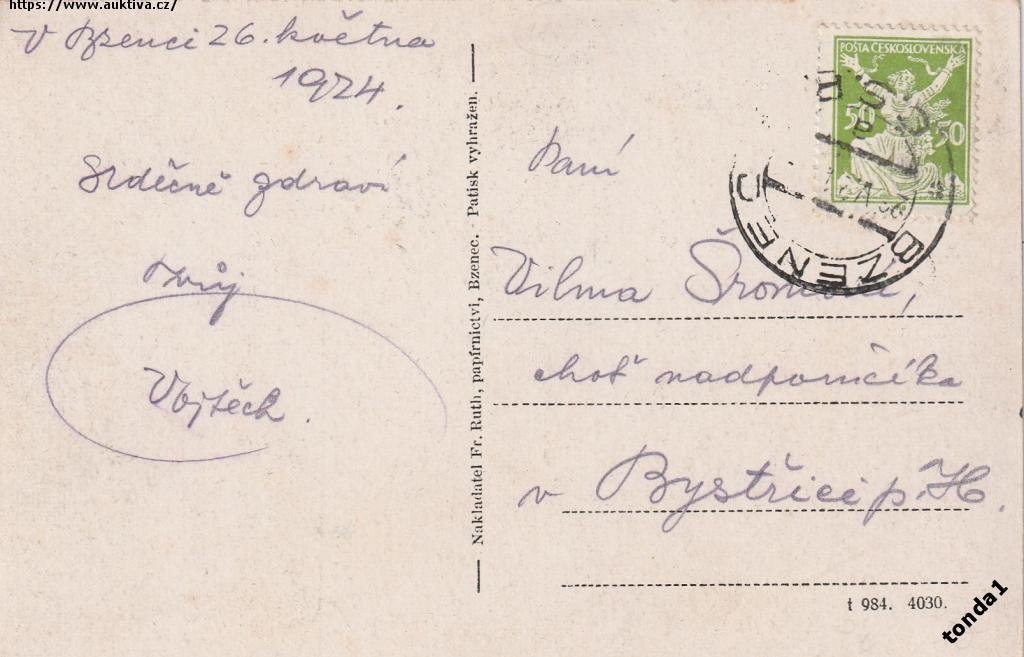 https://www.auktiva.cz/
V Bzenci 26. května
1924.
Srdečně zdraví
Tvůj
Vojtěch.
Nakladatel Fr. Ruth, papírnictví, Bzenec. - Patisk vyhražen.
POŠTA ČESKOSLOVENSKÁ
50 50
BZENEC
Paní
Vilma
choť nadporučíka
v Bystřici p. H.
t 984. 4030.
tonda1